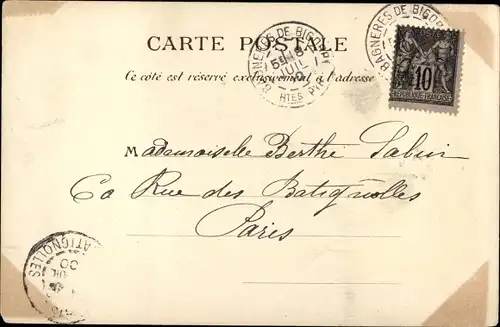 CARTE POSTALE
Ce côté est réservé exclusivement à l'adresse
BAGNERES DE BIGORRE
JUIL
HTES PYR
BAGNERES DE BIGO
10
REPUBLIQUE FRANÇAISE
Mademoiselle Berthe Sabin
60 Rue des Batignolles
Paris
BATIGNOLLES
JUIL
00
PARIS